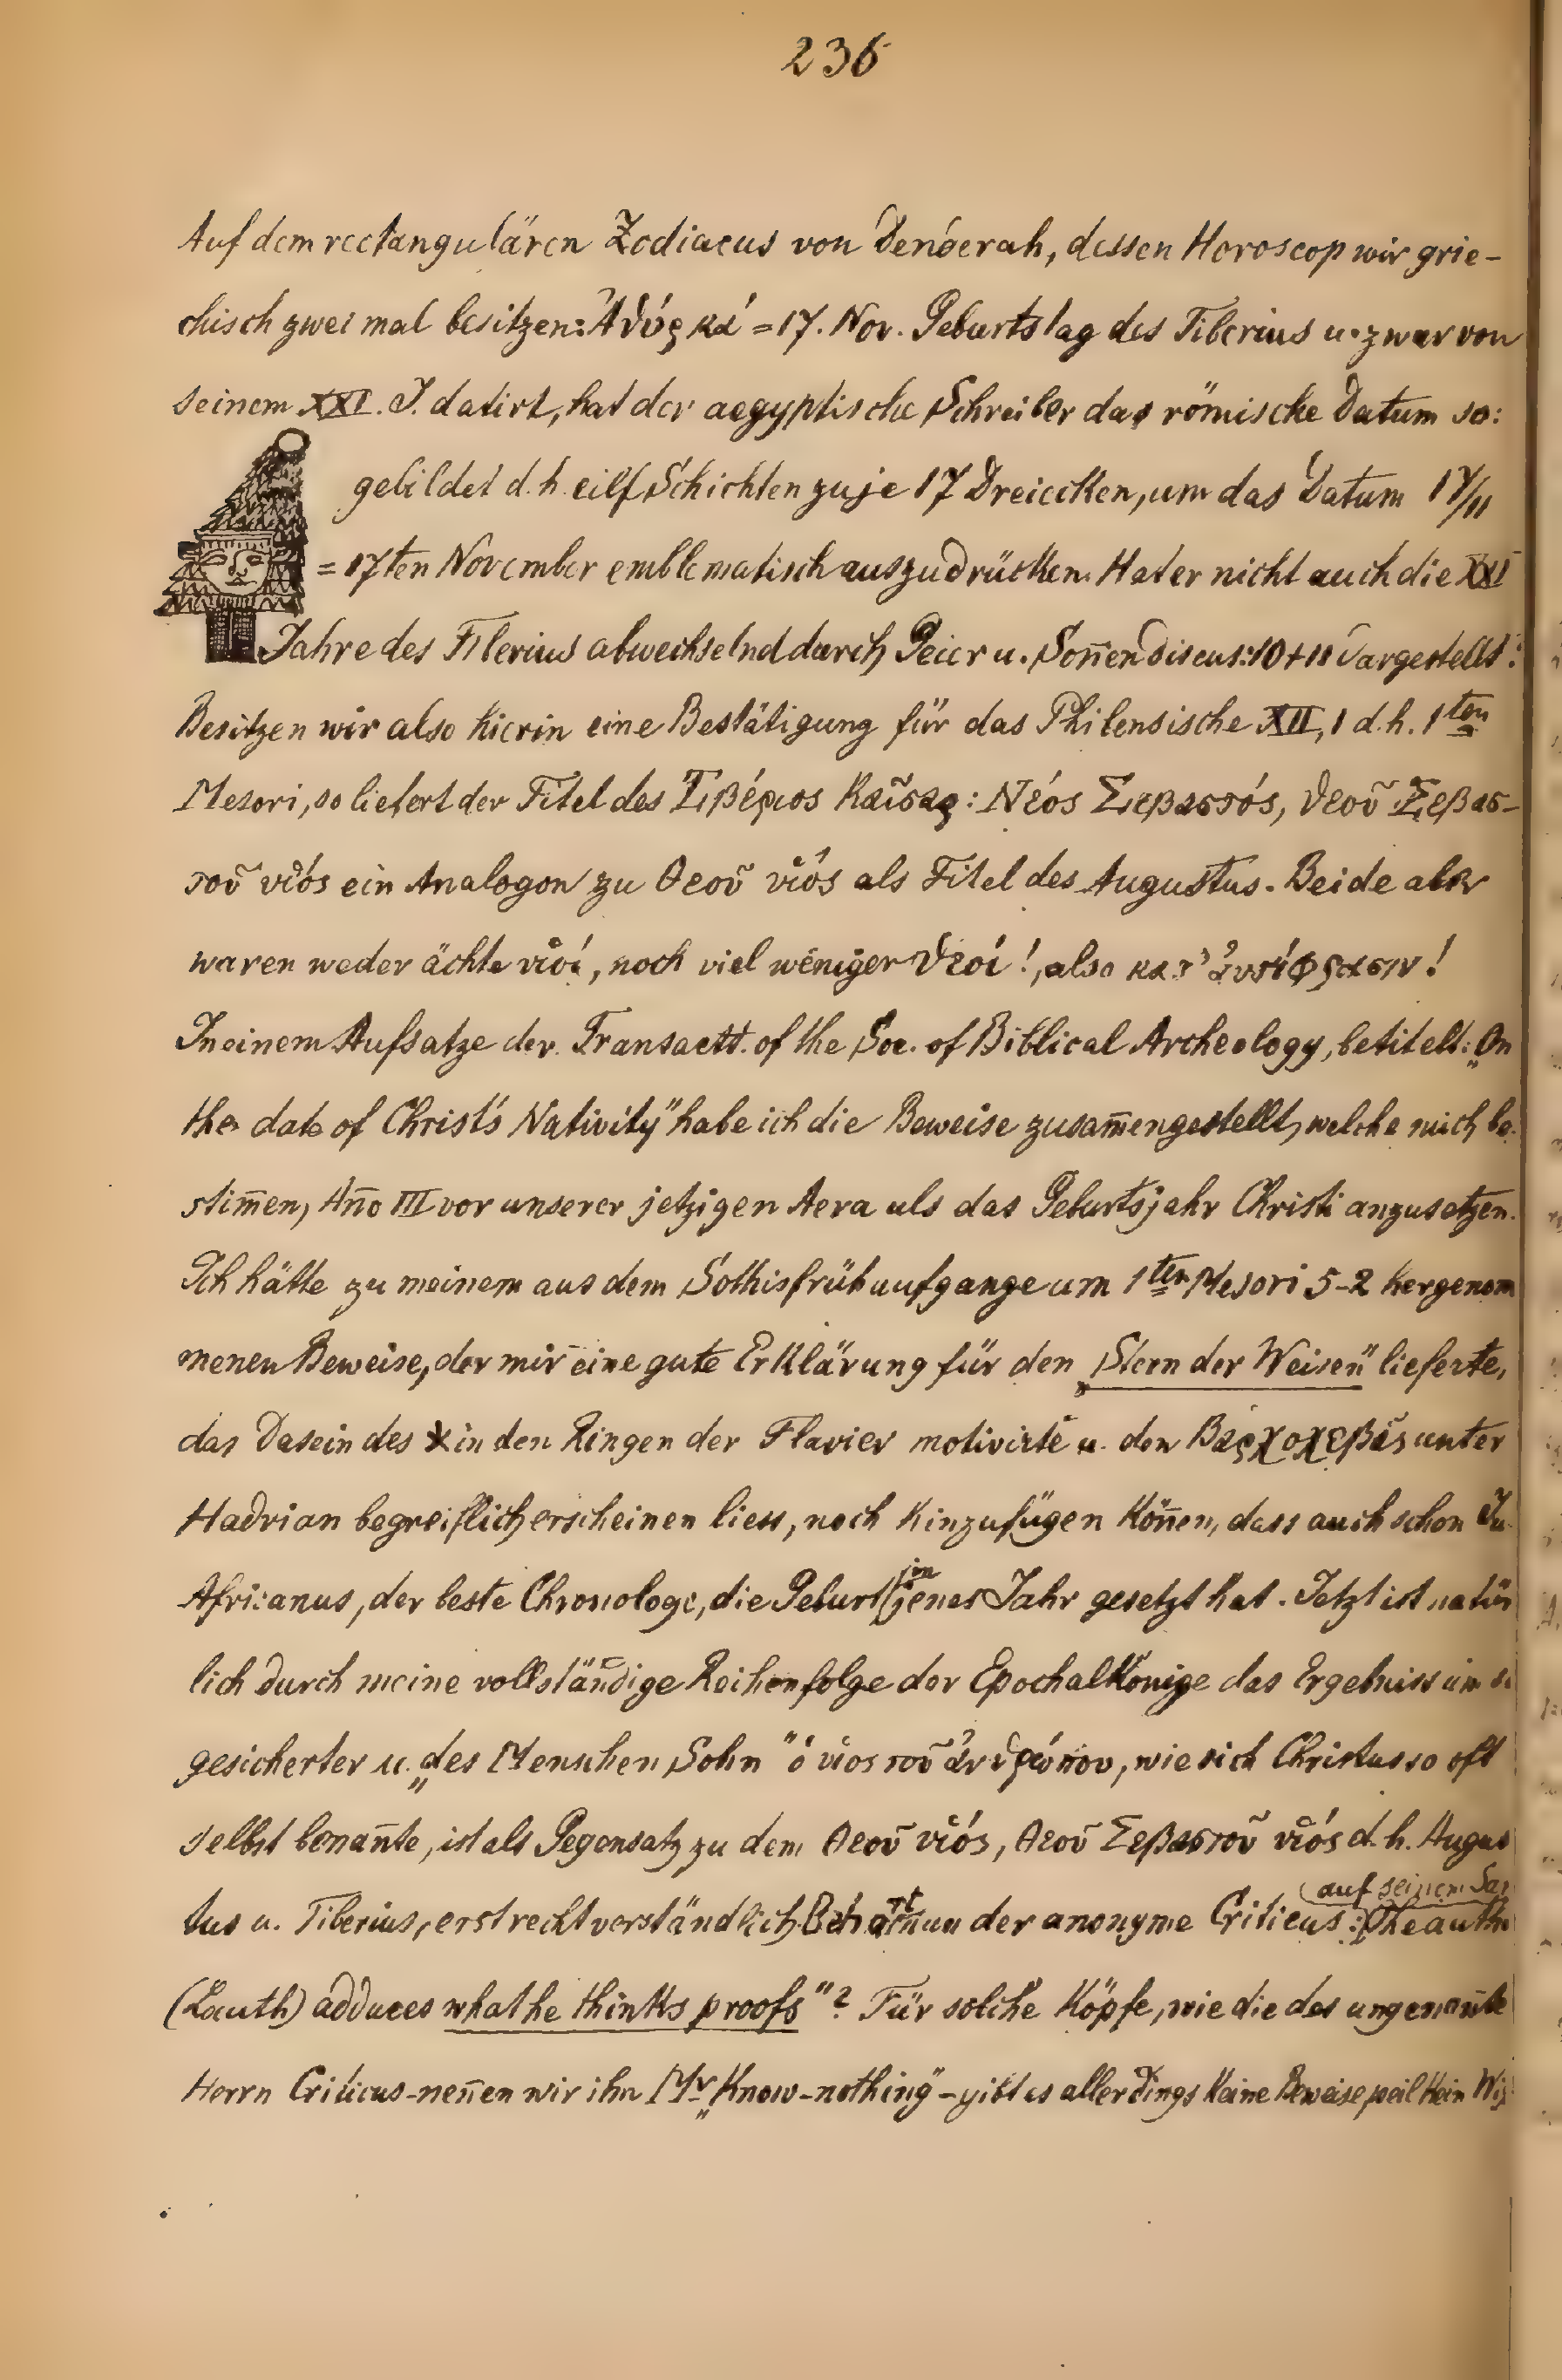 236
Auf dem rectangulären Zodiacus von Denderah, dessen Horoscop wir grie-
chisch zweimal besitzen: Ἀθύρ κά = 17. Nov. Geburtstag des Tiberius u. zwar von
seinem XXI. J. datirt, hat der aegyptische Schreiber das römische Datum so:
gebildet d. h. eilf Schichten zu je 17 Dreiecken, um das Datum 17/11
= 17ten November emblematisch auszudrücken. Hat er nicht auch die XXI
Jahre des Tiberius abwechselnd durch Geier u. Son̄endiscus: 10+11 dargestellt?
Besitzen wir also hierin eine Bestätigung für das Philensische XII, 1 d. h. 1ten
Mesori, so liefert der Titel des Τιβέριος Καῖσαρ: Νέος Σεβαστός, θεοῦ Σεβασ-
τοῦ υἱός ein Analogon zu Θεοῦ υἱός als Titel des Augustus. Beide aber
waren weder ächte υἱοί, noch viel weniger θεοί!, also κατ' ἀντίφρασιν!
In einem Aufsatze der Transactt. of the Soc. of Biblical Archeology, betitelt: „On
the date of Christ's Nativity" habe ich die Beweise zusam̄engestellt, welche mich be-
stim̄en, An̄o III vor unserer jetzigen Aera als das Geburtsjahr Christi anzusetzen.
Ich hätte zu meinem aus dem Sothisfrühaufgange um 1ten Mesori 5-2 hergenom
menen Beweise, der mir eine gute Erklärung für den „Stern der Weisen" lieferte,
das Dasein des * in den Ringen der Flavier motivirte u. den Βαρχοχεβάς unter
Hadrian begreiflich erscheinen liess, noch hinzufügen kön̄en, dass auch schon Ju.
Africanus, der beste Chronologe, die Geburt in jenes Jahr gesetzt hat. Jetzt ist natür
lich durch meine vollständige Reihenfolge der Epochalkönige das Ergebniss um so
gesicherter u. „des Menschen Sohn" ὁ υἱος τοῦ ἀνθρώπου, wie sich Christus so oft
selbst benan̄te, ist als Gegensatz zu dem Θεοῦ υἱός, Θεοῦ Σεβαστοῦ υἱός d. h. Augus
tus u. Tiberius, erst recht verständlich. nun der anonyme Criticus: auf seinem „The autho
(Lauth) adduces what he thinks proofs"? Für solche Köpfe, wie die des ungenan̄te
Herrn Criticus - nen̄en wir ihn Mr „Know-nothing" - gibt es allerdings keine Beweise weil kein Wis